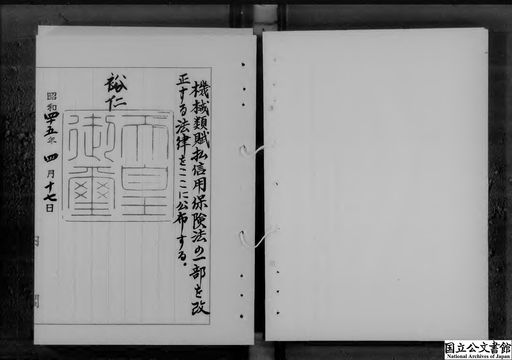 機械類賦払信用保険法の一部を改
正する法律をここに公布する。
裕仁
天皇
御璽
昭和四十五年四月十七日
国立公文書館
National Archives of Japan